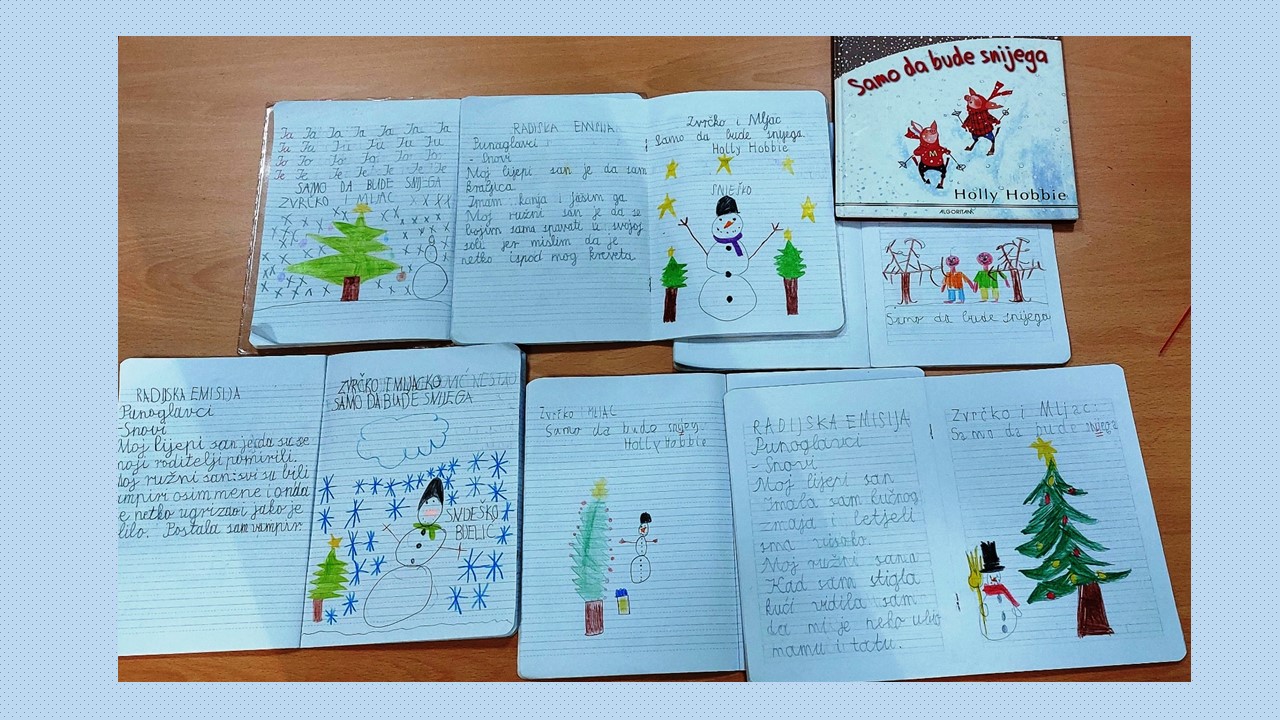 Samo da bude snijega
Holly Hobbie
ALGORITAM
Ja Ja Ja Ja Ja Ja Ja
Ju Ju Ju Ju Ju Ju Ju
Jo Jo Jo Jo Jo Jo
Je Je Je Je Je Je Je
SAMO DA BUDE SNIJEGA
ZVRČKO I MLJAC
RADIJSKA EMISIJA
Punoglavci
- Snovi
Moj lijepi san je da sam
kraljica
Imam konja i jašim ga
Moj ružni san je da se
bojim sama spavati u svojoj
sobi jer mislim da je
netko ispod mog kreveta
Zvrčko i Mljac
Samo da bude snijega
Holly Hobbie
SNJEŠKO
Samo da bude snijega
RADIJSKA EMISIJA
Punoglavci
-Snovi
Moj lijepi san je da su se
moji roditelji pomirili.
Moj ružni san: svi su bili
vampir osim mene i onda
me netko ugrizao i jako je
bilo. Postala sam vampir
ZVRČKO I MLJAC
SAMO DA BUDE SNIJEGA
SNJEŠKO
BIJELIĆ
Zvrčko i MLJAC
Samo da bude snijeg
Holly Hobbie
RADIJSKA EMISIJA
Punoglavci
- Snovi
Moj lijepi san
Imala sam kućnog
zmaja i letjeli
smo visoko.
Moj ružni san
Kad sam stigla
kući vidila sam
da mi je neko ubio
mamu i tatu.
Zvrčko i Mljac:
Samo da bude snijega